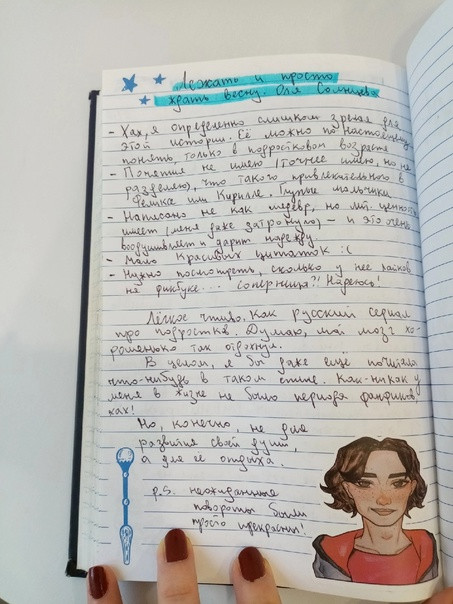 Лежать и просто
ждать весну. Оля Солнцева
- Хах, я определенно слишком зрелая для
этой истории. Её можно по-настоящему
понять, только в подростковом возрасте
- Понятия не имею (точнее имею, но не
разделяю), что такого привлекательного в
Феликсе или Кирилле. Глупые мальчики
- Написано не как шедевр, но лит. ценность
имеет (меня даже затронуло) – и это очень
воодушевляет и дарит надежду
- Мало красивых цитаток :(
- Нужно посмотреть, сколько у нее лайков
на фикбуке... соперница?! Надеюсь!
Лёгкое чтиво, как русский сериал
про подростков. Думаю, мой мозг хо-
рошенько так отдохнул.
В целом, я бы даже ещё почитала
что-нибудь в таком стиле. Как-никак у
меня в жизни не было периода фанфиков
хах!
Но, конечно, не для
развития своей души,
а для её отдыха.
p.s. неожиданные
повороты были
просто прекрасны!